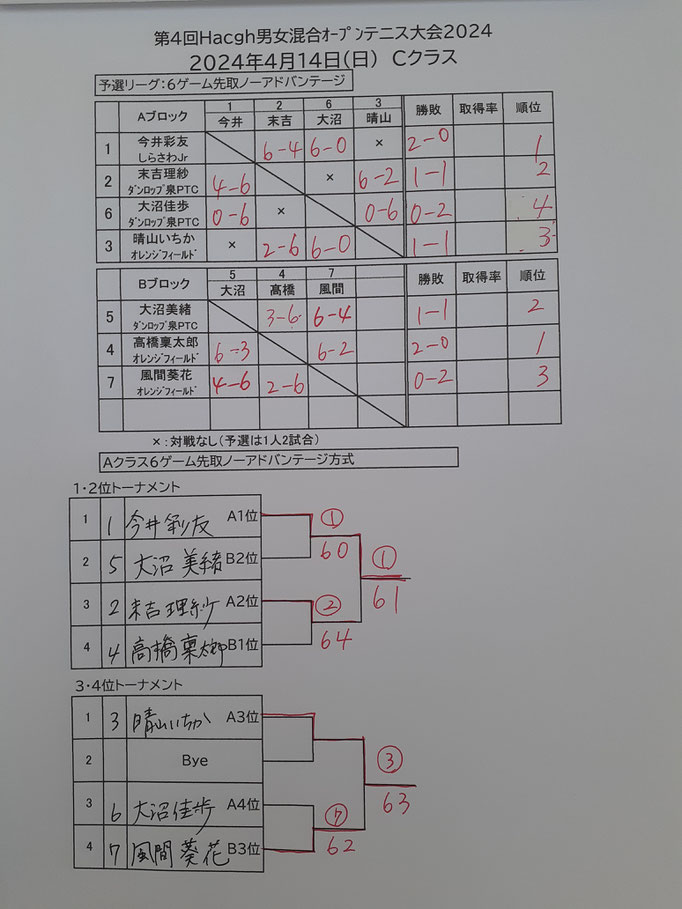 第4回Hacgh男女混合ｵｰﾌﾟﾝテニス大会2024
2024年4月14日(日) Cクラス
予選リーグ：6ゲーム先取ノーアドバンテージ
Aブロック 1 今井 2 末吉 6 大沼 3 晴山 勝敗 取得率 順位
1 今井彩友 6-4 6-0 × 2-0 1
しらさわJr
2 末吉理紗 4-6 × 6-2 1-1 2
ﾀﾞﾝﾛｯﾌﾟ泉PTC
6 大沼佳歩 0-6 × 0-6 0-2 4
ﾀﾞﾝﾛｯﾌﾟ泉PTC
3 晴山いちか × 2-6 6-0 1-1 3
オレンジフィールド
Bブロック 5 大沼 4 髙橋 7 風間 勝敗 取得率 順位
5 大沼美緒 3-6 6-4 1-1 2
ﾀﾞﾝﾛｯﾌﾟ泉PTC
4 高橋稟太郎 6-3 6-2 2-0 1
オレンジフィールド
7 風間葵花 4-6 2-6 0-2 3
オレンジフィールド
×：対戦なし(予選は1人2試合)
Aクラス6ゲーム先取ノーアドバンテージ方式
1・2位トーナメント
1 1 今井彩友 A1位
① 60
2 5 大沼美緒 B2位
① 61
3 2 末吉理紗 A2位
② 64
4 4 高橋稟太郎 B1位
3・4位トーナメント
1 3 晴山いちか A3位
2 Bye
③ 63
3 6 大沼佳歩 A4位
⑦ 62
4 7 風間葵花 B3位